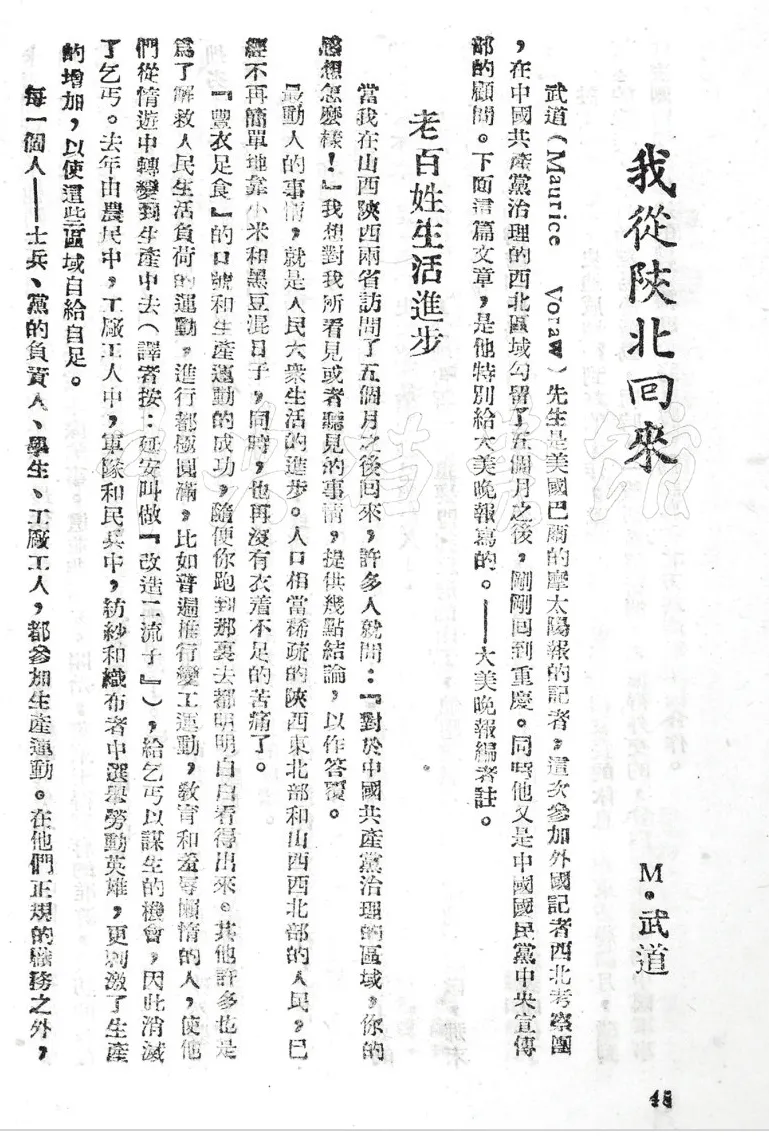 我從陝北回來
M·武道
武道（Maurice Voraw）先生是美國巴爾的摩太陽報的記者，這次參加外國記者西北考察團
，在中國共產黨治理的西北區域勾留了五個月之後，剛剛回到重慶。同時他又是中國國民黨中央宣傳
部的顧問。下面這篇文章，是他特別給大美晚報寫的。——大美晚報編者註。
老百姓生活進步
當我在山西陝西兩省訪問了五個月之後回來，許多人就問：『對於中國共產黨治理的區域，你的
感想怎麼樣！』我想對我所看見或者聽見的事情，提供幾點結論，以作答覆。
最動人的事情，就是人民大衆生活的進步。人口相當稀疏的陝西東北部和山西西北部的人民，已
經不再簡單地靠小米和黑豆混日子，同時，也再沒有衣着不足的苦痛了。
『豐衣足食』的口號和生產運動的成功，隨便你跑到那裏去都明明白白看得出來。其他許多也是
爲了解救人民生活負荷的運動，進行都極圓滿，比如普遍推行變工運動，教育和羞辱懶惰的人，使他
們從惰遊中轉變到生產中去（譯者按：延安叫做『改造二流子』），給乞丐以謀生的機會，因此消滅
了乞丐。去年由農民中，工廠工人中，軍隊和民兵中，紡紗和織布者中選舉勞動英雄，更刺激了生產
的增加，以使這些區域自給自足。
每一個人——士兵、黨的負責人、學生、工廠工人，都參加生產運動。在他們正規的職務之外，
45